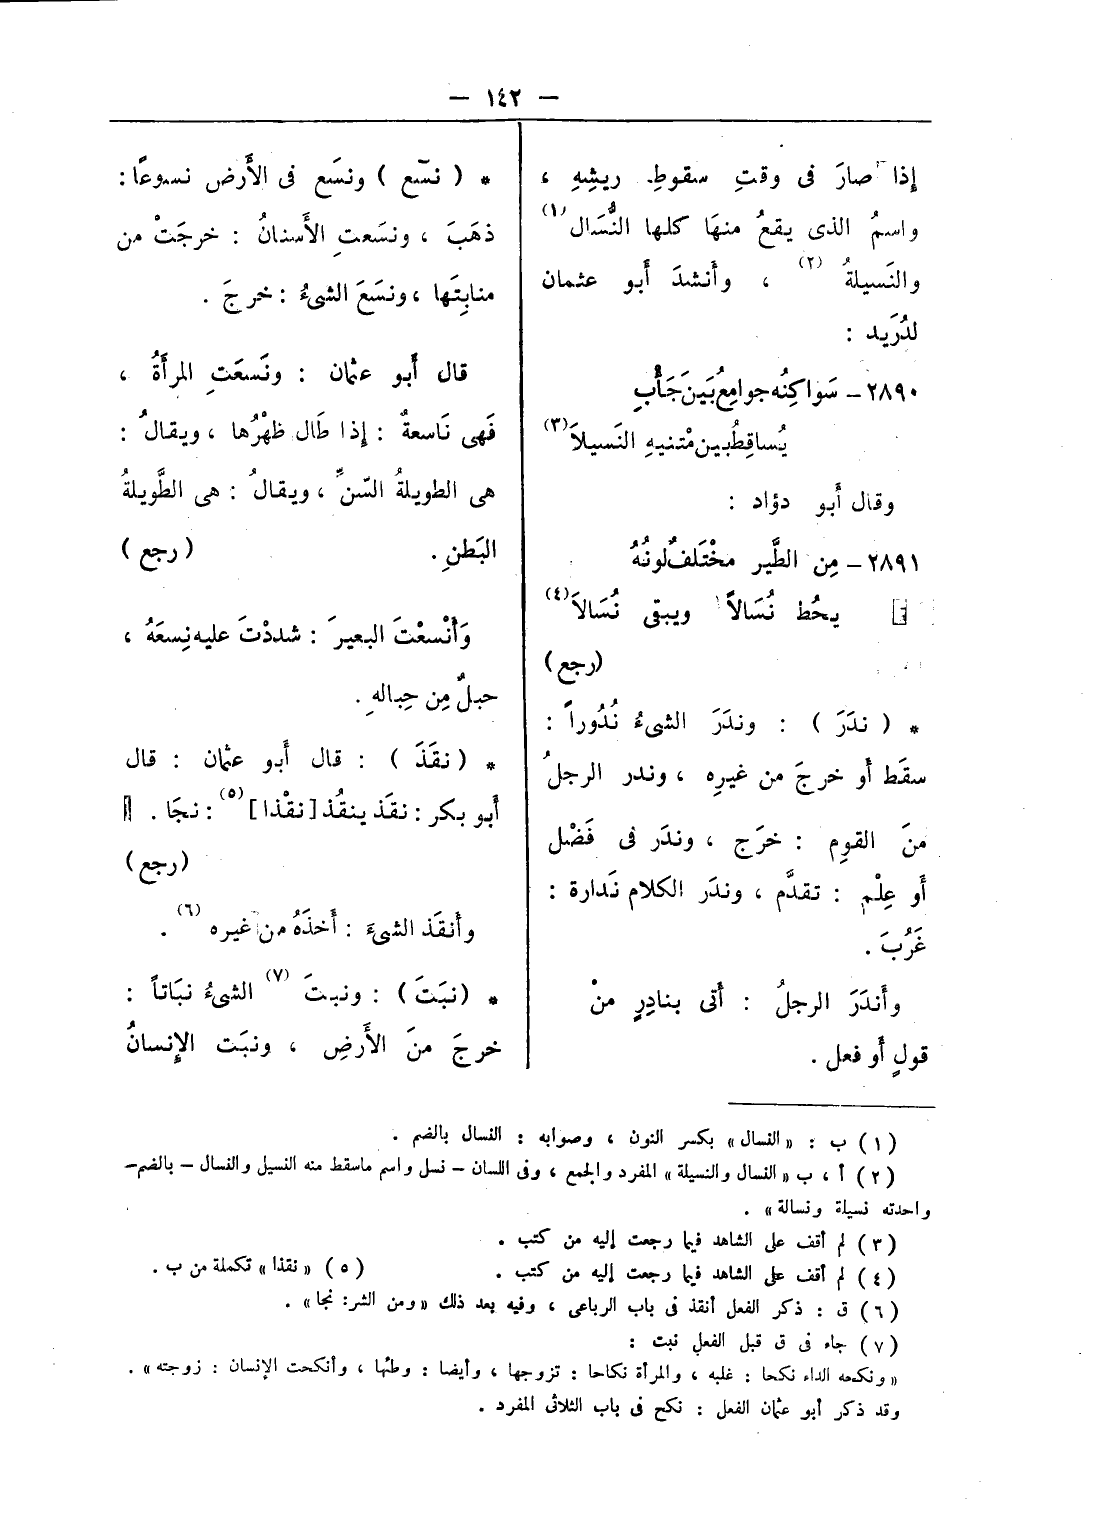 — ١٤٢ —
إذا صارَ فى وقتِ سقوطِ ريشِهِ ،
واسمُ الذى يقعُ منهَا كلها النُّسَال (١)
والنَسيلةُ (٢) ، وأَنشدَ أَبو عثمان
لدُرَيد :
٢٨٩٠ – سَواكِنُه جوامِعُ بَينَ جَأْبٍ
يُساقِطُ بين مْتنيهِ النَسيلاَ (٣)
وقال أَبو دؤاد :
٢٨٩١ – مِن الطَّير مخْتَلفٌ لونُهُ
يحُط نُسَالاً ويبقى نُسَالاَ (٤)
(رجع)
* ( ندَرَ ) : وندَرَ الشىءُ نُدُوراً :
سقَط أو خرجَ من غيرِه ، وندر الرجلُ
منَ القومِ : خرَج ، وندَر فى فَضْل
أَو عِلْم : تقدَّم ، وندَر الكلام نَدارة :
غَرُبَ .
وأَندَرَ الرجلُ : أَتى بنادِرٍ منْ
قولٍ أَو فعل .
* ( نسَع ) ونسَع فى الأَرض نسوعًا :
ذهَبَ ، ونسَعتِ الأَسنانُ : خرجَتْ من
منابِتَها ، ونسَعَ الشىءُ : خرجَ .
قال أَبو عثمان : ونَسعَتِ المرأَةُ ،
فَهى نَاسعةٌ : إذا طَال ظهْرُها ، ويقالُ :
هى الطويلةُ السّنِّ ، ويقالُ : هى الطَّويلةُ
البَطنِ . (رجع)
وَأَنْسعْتَ البعيرَ : شددْتَ عليه نِسعَهُ ،
حبلٌ مِن حِبالهِ .
* ( نقَذَ ) : قال أَبو عثمان : قال
أَبو بكر : نقَذ ينقُذ [ نقْذا ] (٥) : نجَا .
(رجع)
وأَنقَذ الشىءَ : أَخذَهُ من غيره (٦) .
* (نبَتَ) : ونبتَ (٧) الشىءُ نبَاتاً :
خرجَ منَ الأَرضِ ، ونبَت الإِنسانُ
(١) ب : « النسال » بكسر النون ، وصوابه : النسال بالضم .
(٢) أ ، ب « النسال والنسيلة » المفرد والجمع ، وفى اللسان – نسل واسم ماسقط منه النسيل والنسال – بالضم–
واحدته نسيلة ونسالة » .
(٣) لم أقف على الشاهد فيما رجعت إليه من كتب .
(٤) لم أقف على الشاهد فيما رجعت إليه من كتب . (٥) « نقذا » تكملة من ب .
(٦) ق : ذكر الفعل أنقذ فى باب الرباعى ، وفيه بعد ذلك «ومن الشر: نجا» .
(٧) جاء فى ق قبل الفعل نبت :
« ونكحه الداء نكحا : غلبه ، والمرأة نكاحا : تزوجها ، وأيضا : وطئها ، وأنكحت الإنسان : زوجته » .
وقد ذكر أبو عثمان الفعل : نكح فى باب الثلاثى المفرد .